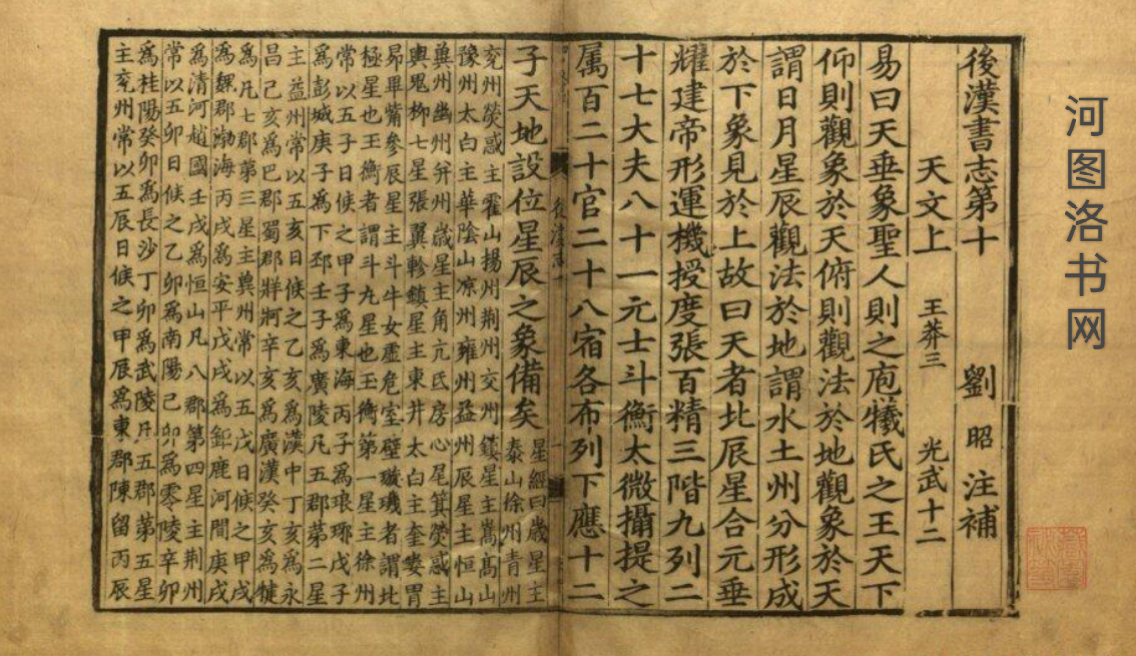 後漢書志第十 劉昭注補
天文上 王莽三 光武十二
易曰天垂象聖人則之庖犧氏之王天下
仰則觀象於天俯則觀法於地觀象於天
謂日月星辰觀法於地謂水土州分形成
於下象見於上故曰天者北辰星合元垂
耀建帝形運機授度張百精三階九列二
十七大夫八十一元士斗衡太微攝提之
属百二十官二十八宿各布列下應十二
子天地設位星辰之象備矣
星經曰歲星主
泰山徐州青州
兖州熒惑主霍山揚州荊州交州鎮星主嵩高山
豫州太白主華陰山凉州雍州益州辰星主恒山
冀州幽州并州歲星主角亢氐房心尾箕熒惑主
輿鬼柳七星張翼軫鎮星主東井太白主奎婁胃
昴畢觜參辰星主斗牛女虛危室壁璇璣者謂北
極星也玉衡者謂斗九星也玉衡第一星主徐州
常以五子日候之甲子為東海丙子為琅琊戊子
為彭城庚子為下邳壬子為廣陵凡五郡第二星
主益州常以五亥日候之乙亥為漢中丁亥為永
昌己亥為巴郡蜀郡牂牁辛亥為廣漢癸亥為犍
為凡七郡第三星主冀州常以五戌日候之甲戌
為魏郡渤海丙戌為安平戊戌為鉅鹿河間庚戌
為清河趙國壬戌為恒山凡八郡第四星主荊州
常以五卯日候之乙卯為南陽己卯為零陵辛卯
為桂陽癸卯為長沙丁卯為武陵凡五郡第五星
主兖州常以五辰日候之甲辰為東郡陳留丙辰
河图洛书网